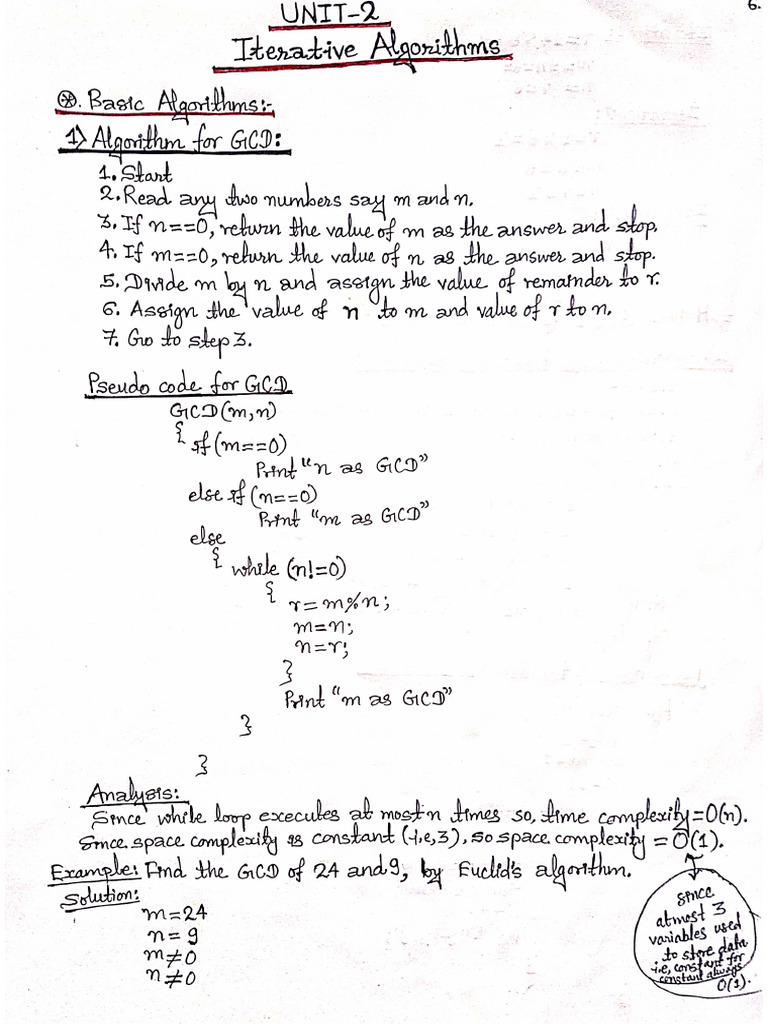 6.
UNIT-2
Iterative Algorithms
⊛. Basic Algorithms:-
1) Algorithm for GCD:
1. Start
2. Read any two numbers say m and n.
3. If n==0, return the value of m as the answer and stop.
4. If m==0, return the value of n as the answer and stop.
5. Divide m by n and assign the value of remainder to r.
6. Assign the value of n to m and value of r to n.
7. Go to step 3.
Pseudo code for GCD
GCD(m,n)
{
if(m==0)
Print "n as GCD"
else if(n==0)
Print "m as GCD"
else
{ while (n!=0)
{ r=m%n;
m=n;
n=r;
}
Print "m as GCD"
}
}
Analysis:
Since while loop executes at most n times so, time complexity=O(n).
Since space complexity is constant (i,e,3), so space complexity = O(1).
Example: Find the GCD of 24 and 9, by Euclid's algorithm.
Solution:
m=24
n=9
m≠0
n≠0
since
atmost 3
variables used
to store data
i.e, constant for
constant always
O(1).